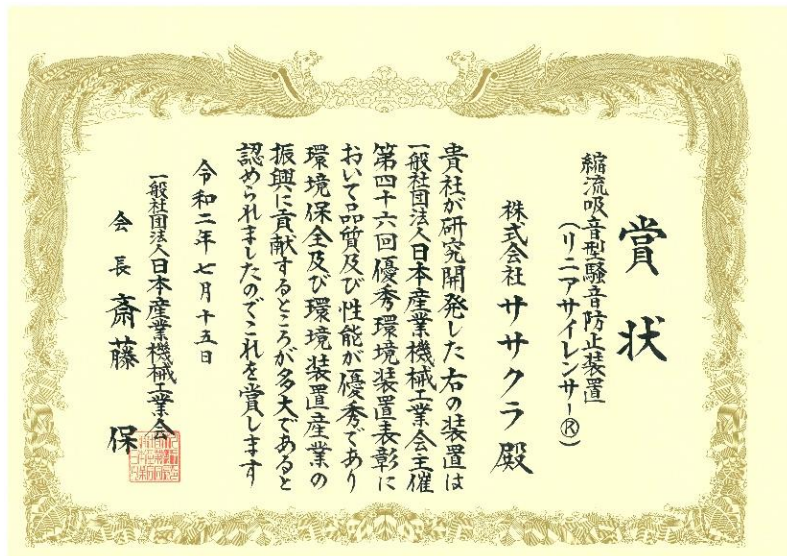 賞状
縮流吸音型騒音防止装置
(リニアサイレンサー®)
株式会社 ササクラ 殿
貴社が研究開発した右の装置は
一般社団法人日本産業機械工業会主催
第四十六回優秀環境装置表彰に
おいて品質及び性能が優秀であり
環境保全及び環境装置産業の
振興に貢献するところが多大であると
認められましたのでこれを賞します
令和二年七月十五日
一般社団法人日本産業機械工業会
会長 斎藤 保